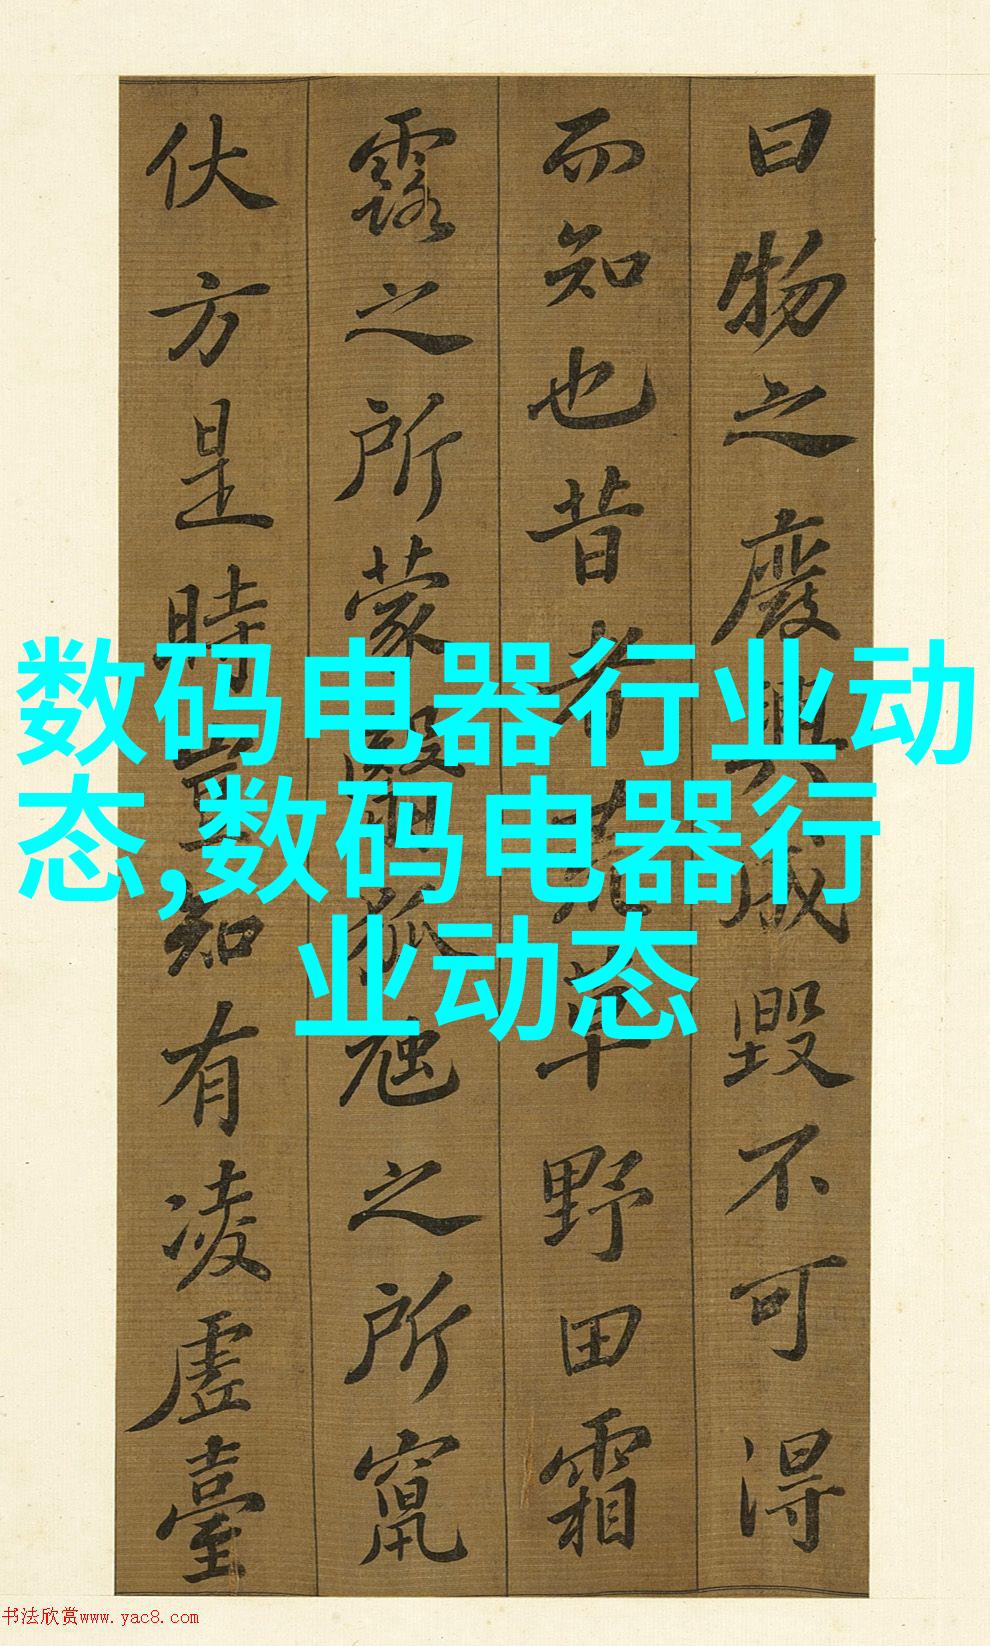 曰物之廢興成毀不可得
而知也昔者荒草野田霜
露之所蒙翳狐虺之所竄
伏方是時豈知有凌虛臺
数码电器行业动
态,数码电器行
业动态
书法欣赏www.yac8.com